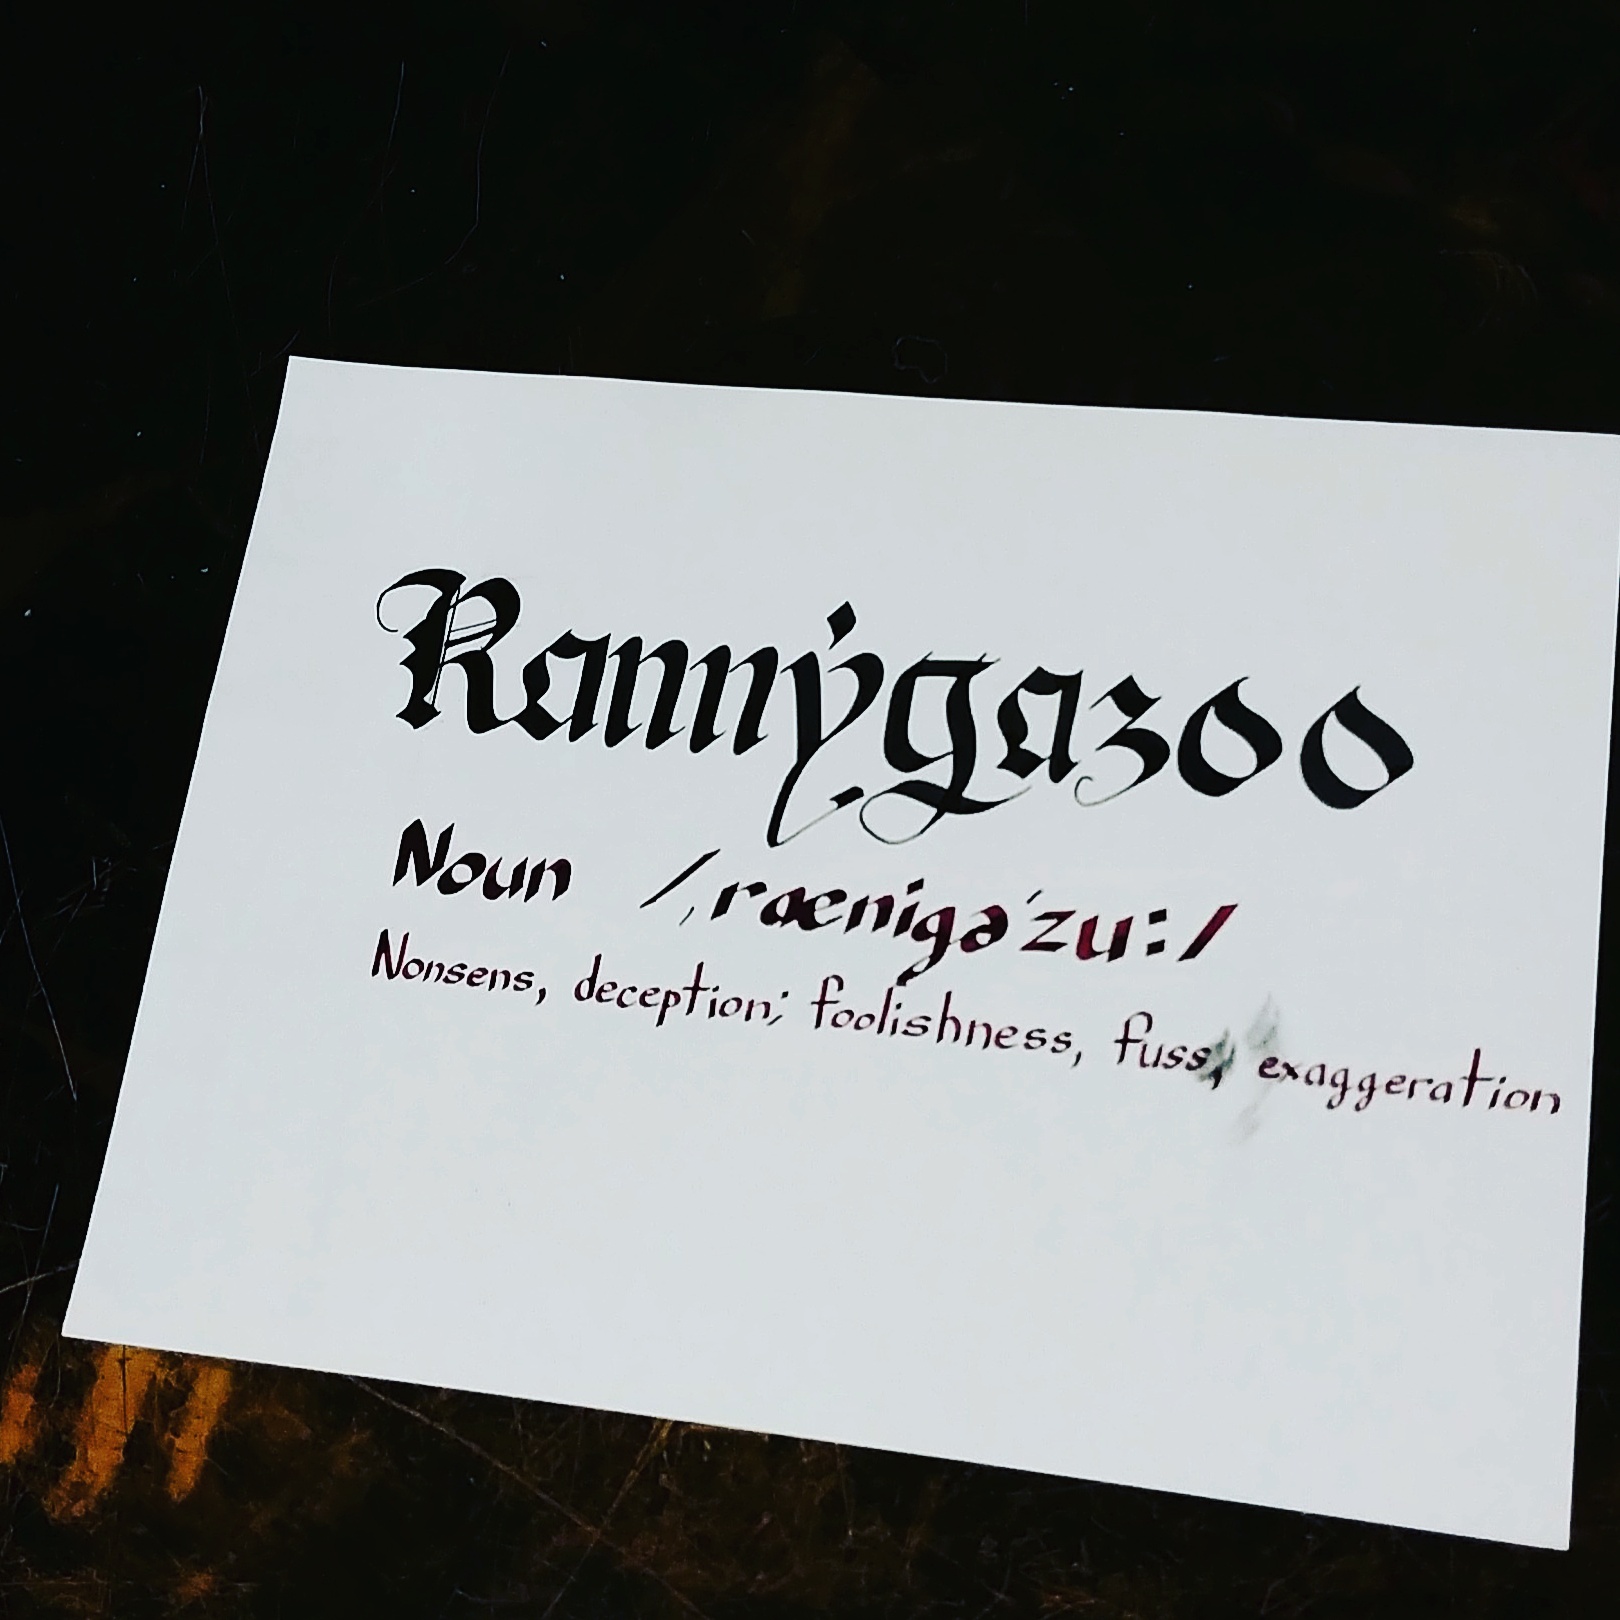 Rannygazoo
Noun /ˌrænigə'zu:/
Nonsens, deception; foolishness, fuss, exaggeration